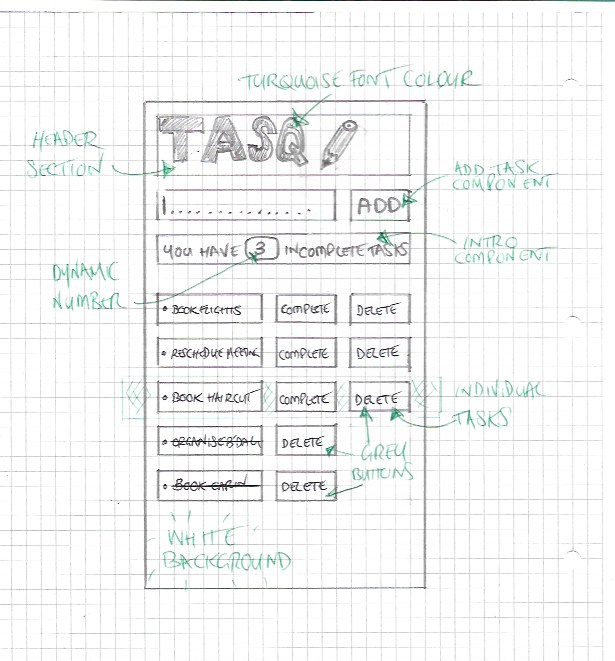 TURQUOISE FONT COLOUR
TASQ
HEADER
SECTION
ADD TASK
COMPONENT
ADD
YOU HAVE 3 INCOMPLETE TASKS
INTRO
COMPONENT
DYNAMIC
NUMBER
• BOOK FLIGHTS COMPLETE DELETE
• RESCHEDULE MEETING COMPLETE DELETE
• BOOK HAIRCUT COMPLETE DELETE
INDIVIDUAL
TASKS
• ORGANISE B'DAY DELETE
GREY
BUTTONS
• BOOK CAR IN DELETE
WHITE
BACKGROUND